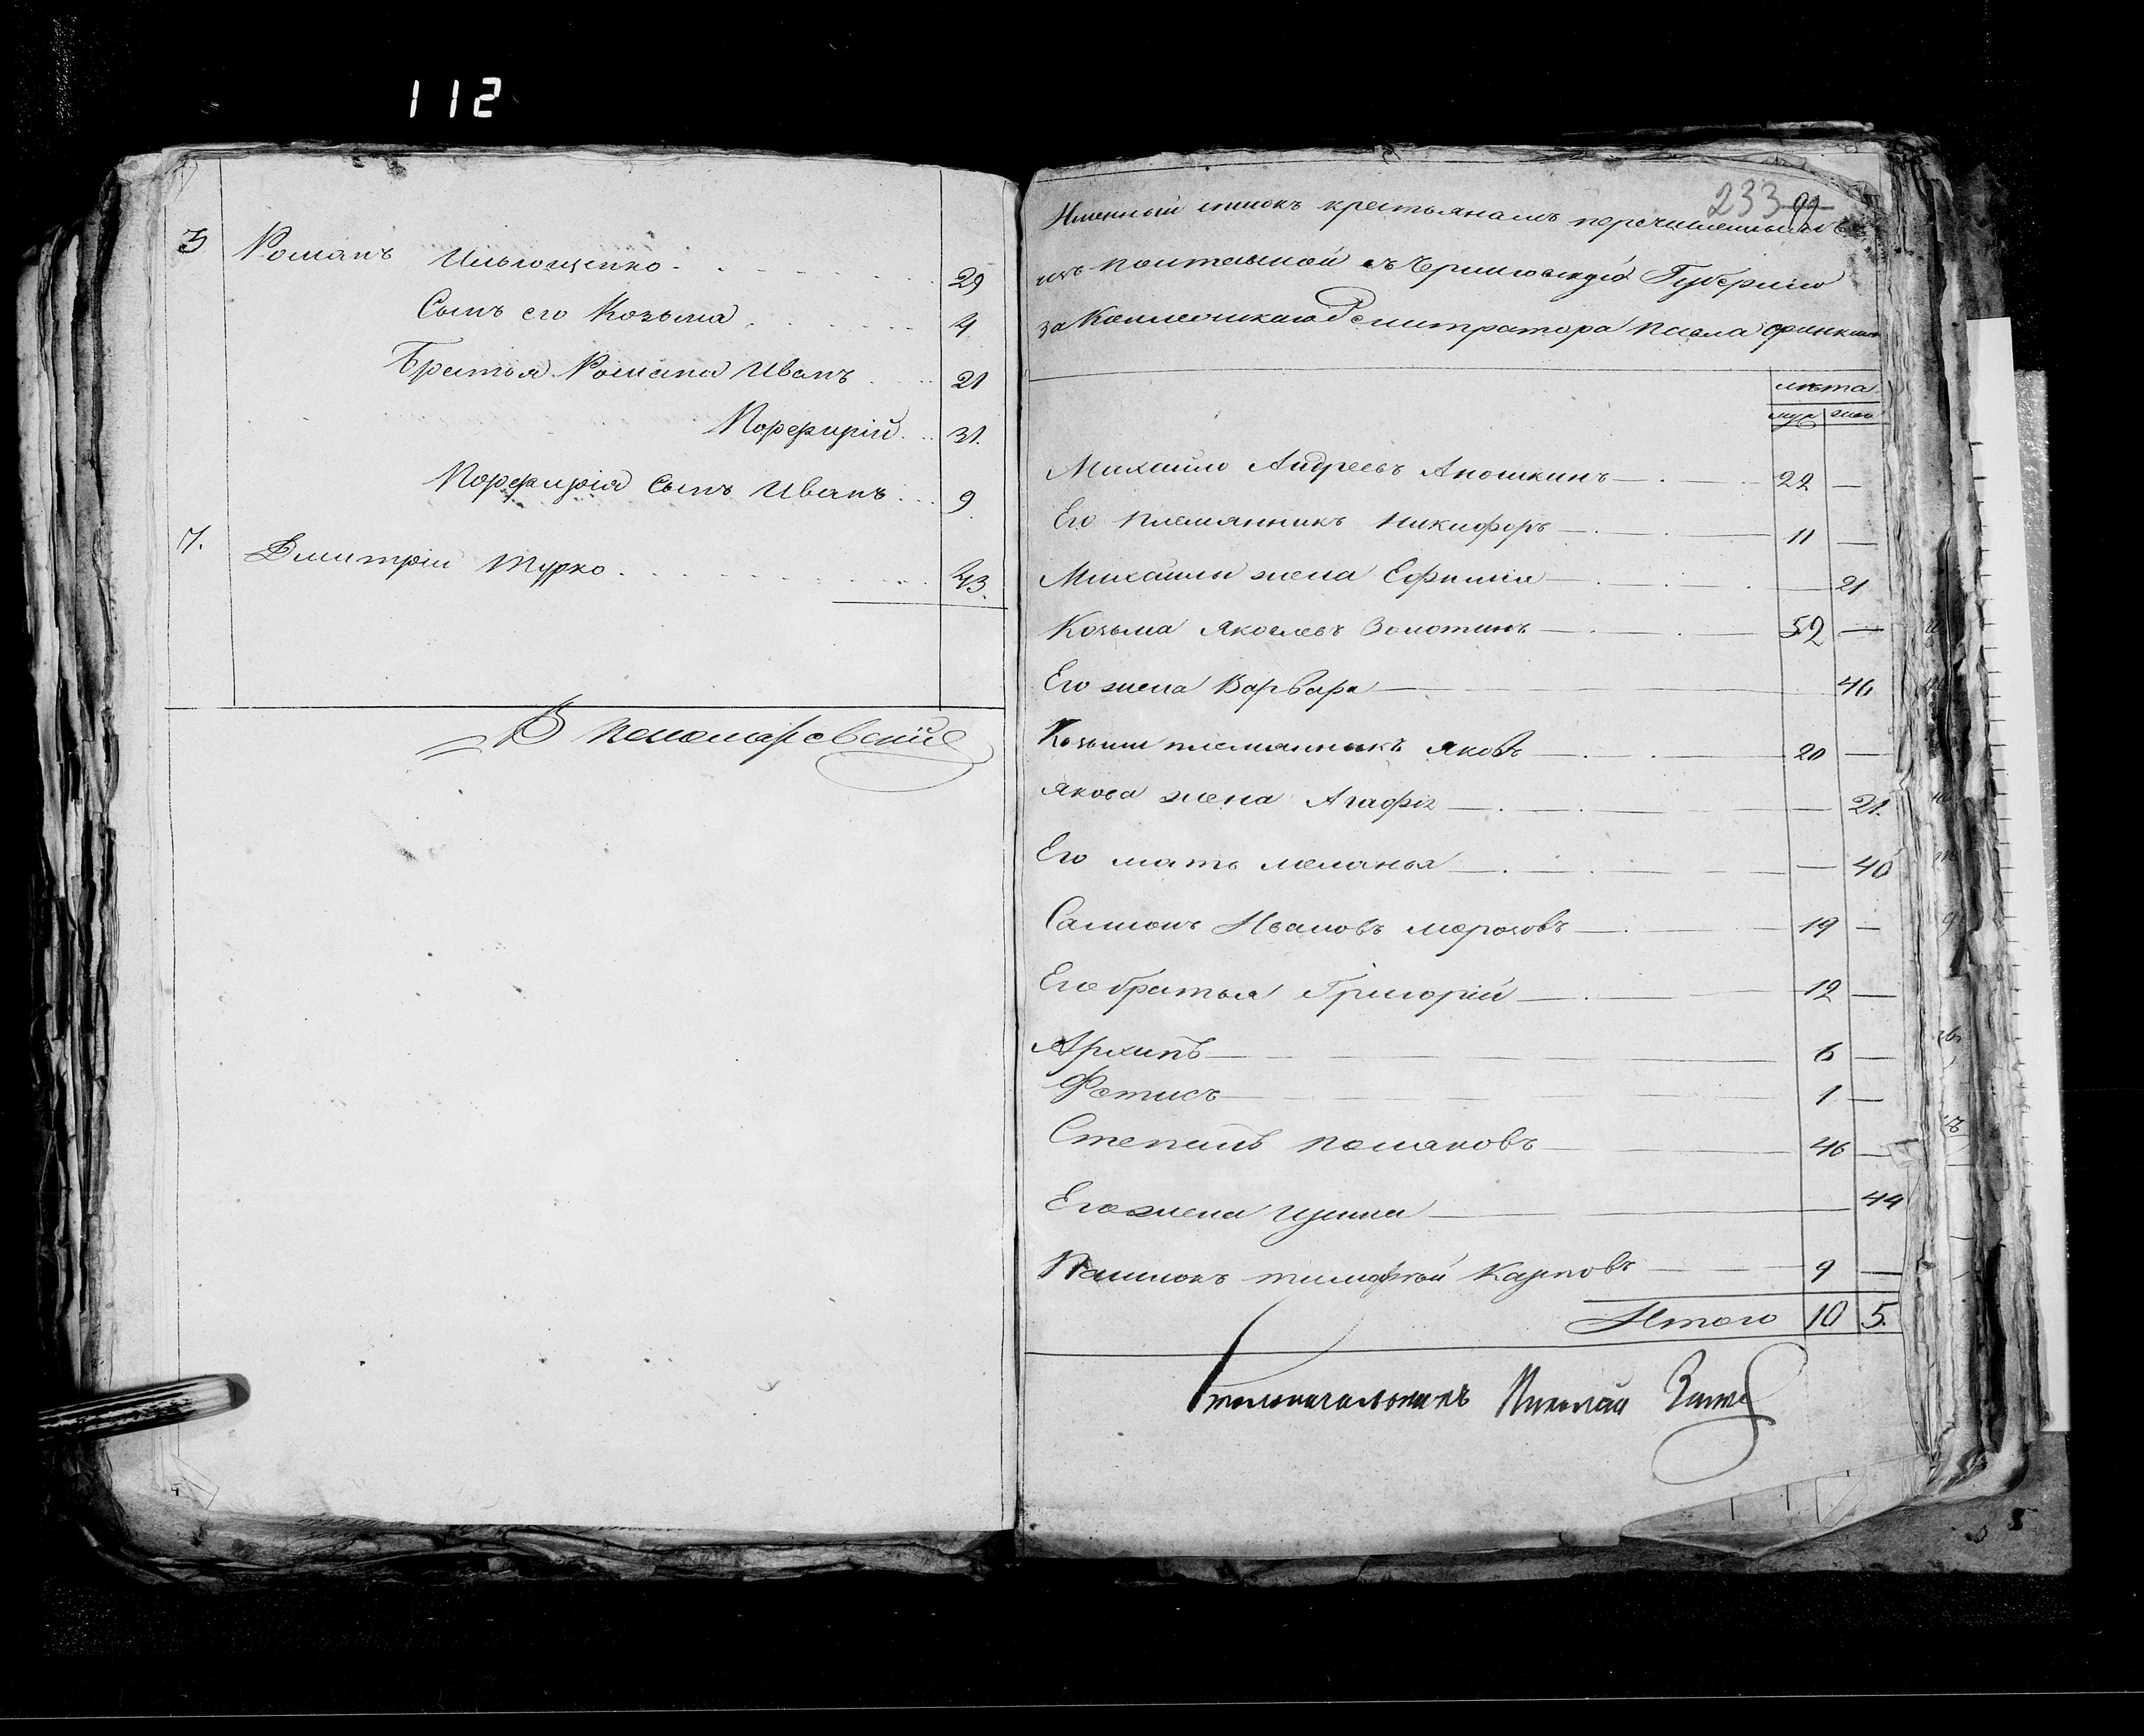 112
3 Романъ Ильющенко 29
Сынъ его Козьма 4
Братья Романа Иванъ 21
Порфирій 31.
Порфирія сынъ Иванъ 9
7. Дмитрій Турко 43.
233
Именный списокъ крестьянамъ перечисленнымъ
изъ Полтавской въ Черниговскую Губернію
за Коллежскаго Регистратора Павла
лѣта
муж жен
Михайло Андреевъ Аношкинъ 22 —
Его племянникъ Никифоръ 11 —
Михайлы жена Ефимія — 21
Козьма Яковлевъ Золотинъ 52 —
Его жена Варвара 46
Козьмы племянникъ Яковъ 20 —
Якова жена Агафія — 21.
Его мать Меланья — 40
Самсонъ Ивановъ Морозовъ 19 —
Его братья Григорій 12 —
Архипъ 6 —
Фетисъ 1 —
Степанъ Поляковъ 46 —
Его жена Ирина 44
Тимофей Карповъ 9 —
Итого 10 5.
Столоначальникъ Николай